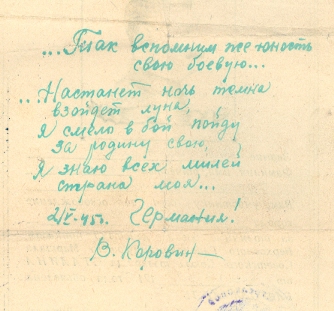 ...Так вспомним же юность
свою боевую...
...Настанет ночь темна
взойдет луна,
Я смело в бой пойду
за родину свою,
Я знаю всех милей
страна моя...
45г. Германия!
В. Коровин